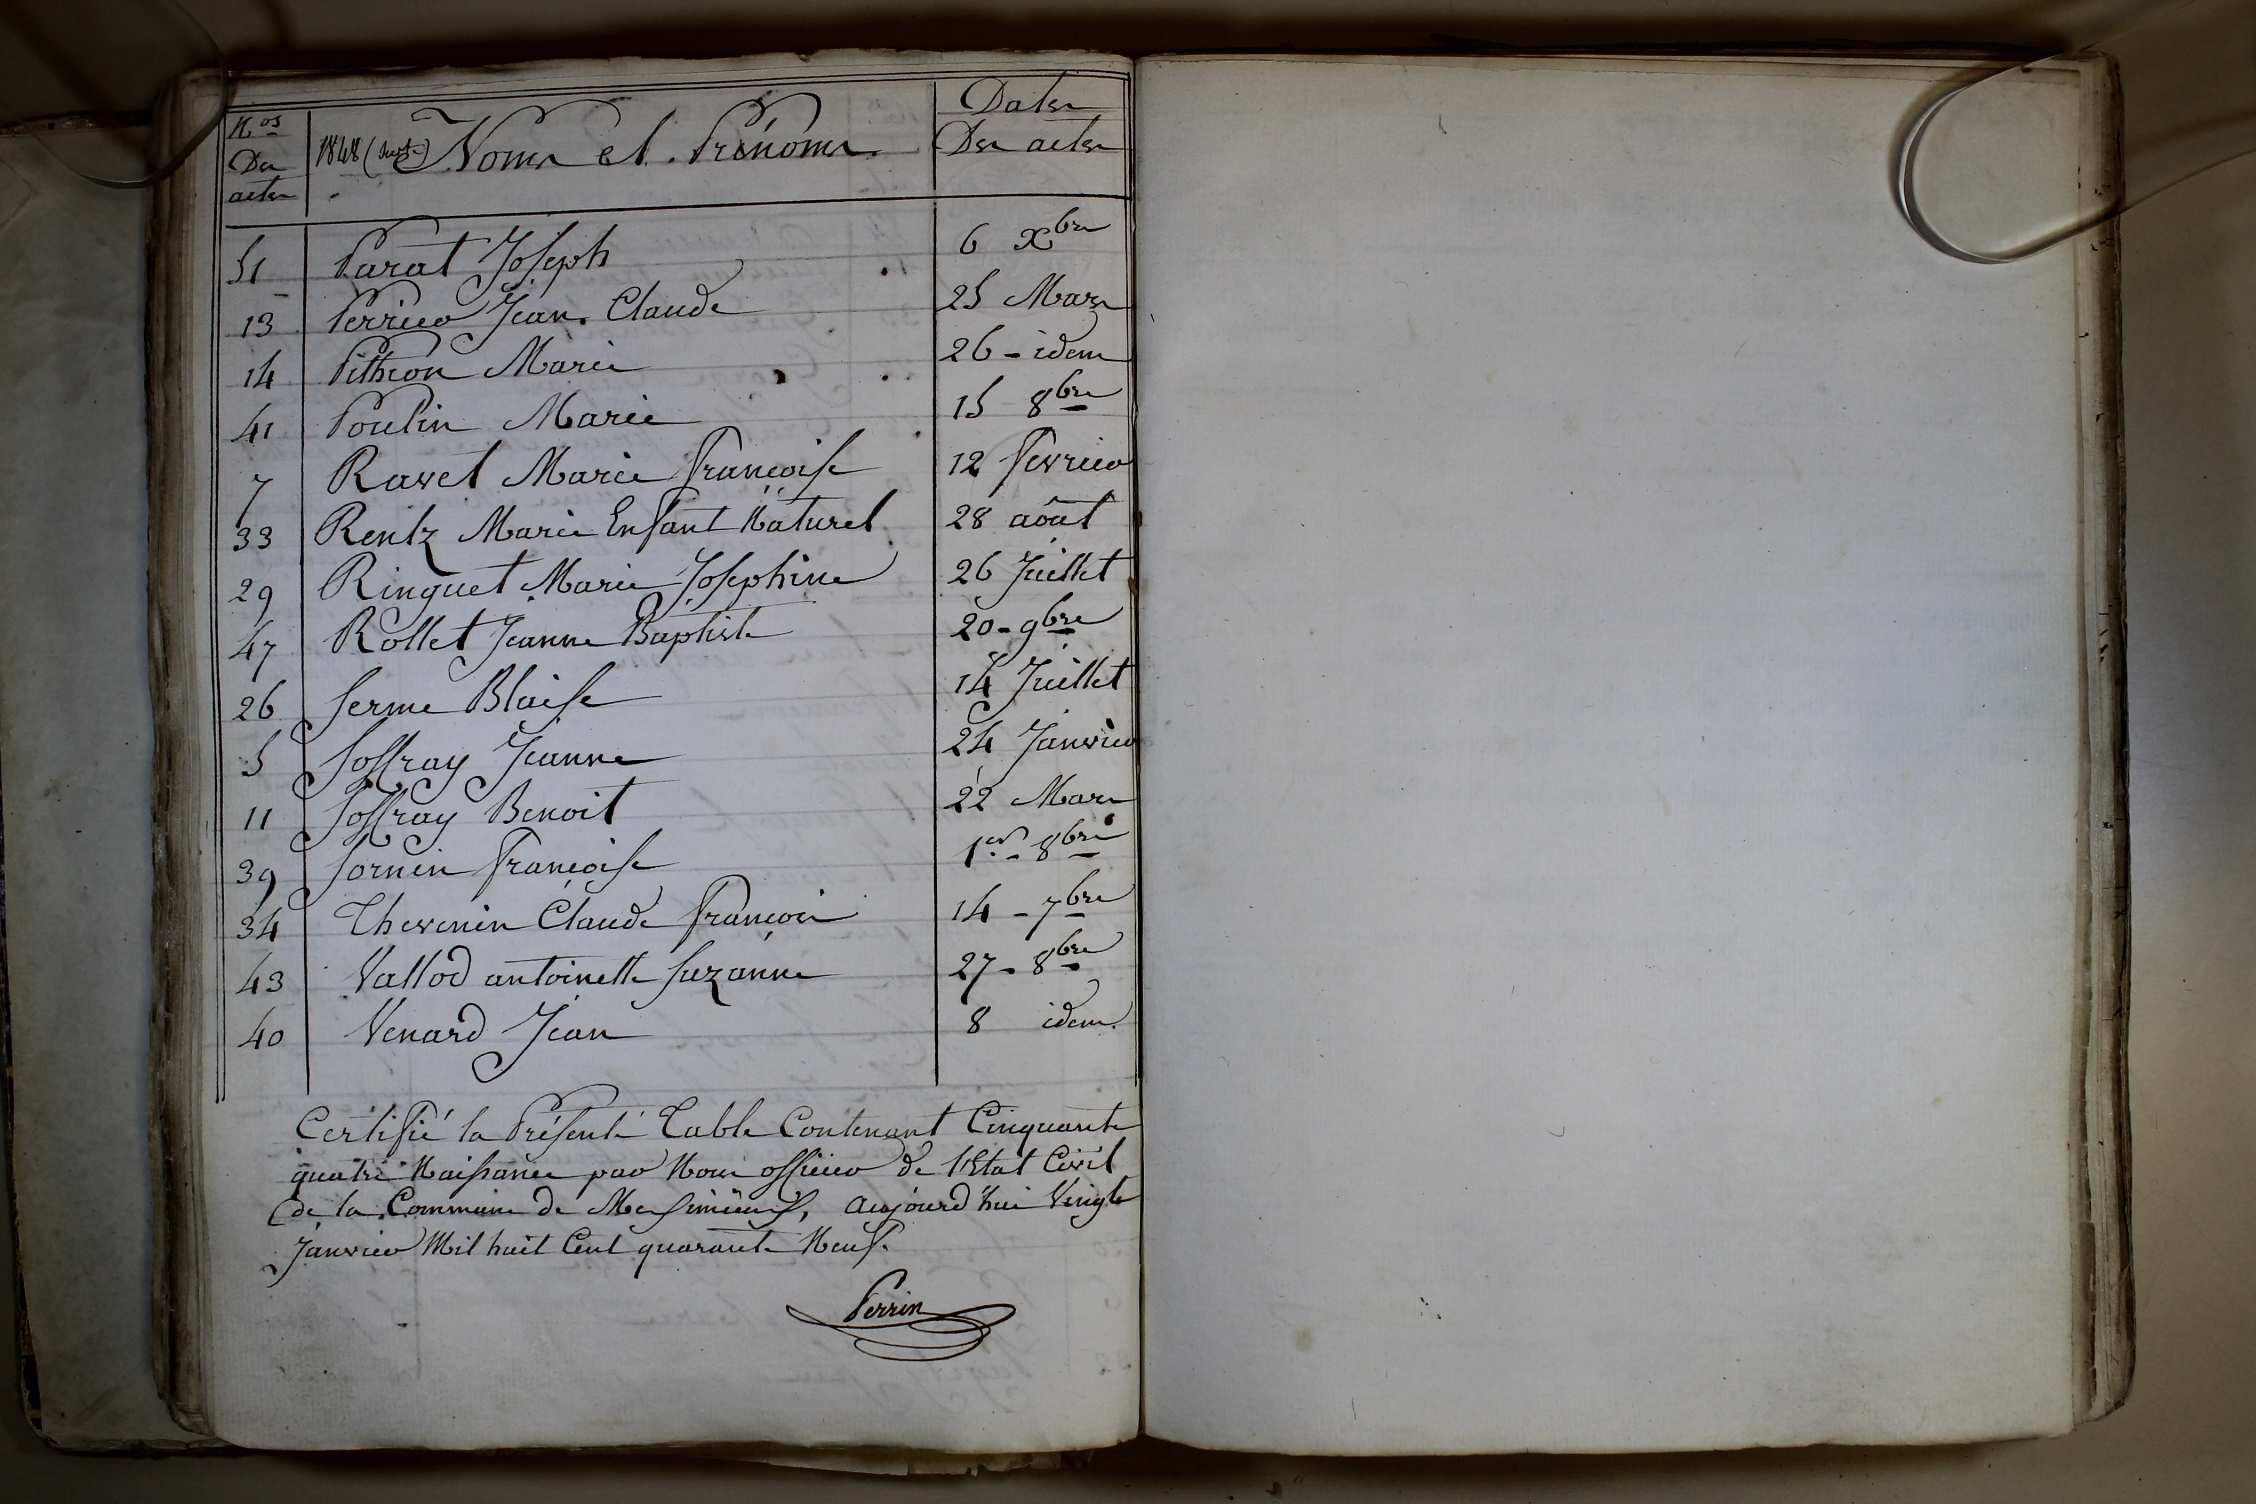 N.os Des actes
1848 (suite) Noms et Prénoms.
Dates Des actes
51 Parat Joseph 6 Xbre
13 Perrier Jean Claude 25 Mars
14 Pithion Marie 26 - idem
41 Poulin Marie 15 8bre
7 Ravet Marie françoise 12 fevrier
33 Rentz Marie Enfant Naturel 28 août
29 Ringuet Marie Josephine 26 Juillet
47 Rollet Jeanne Baptiste 20 - 9bre
26 Serme Blaise 14 Juillet
5 Soffray Jeanne 24 Janvier
11 Soffray Benoit 22 Mars
39 Sornin françoise 1er - 8bre
34 Thevenin Claude françois 14 - 7bre
43 Vallod antoinette Suzanne 27 - 8bre
40 Venard Jean 8 idem.
Certifié la Présente Table Contenant Cinquante
quatre Naissances par Nous officier de l'Etat Civil
de la Commune de Messimieux, aujourd'hui Vingt
Janvier Mil huit Cent quarante Neuf.
Perrin